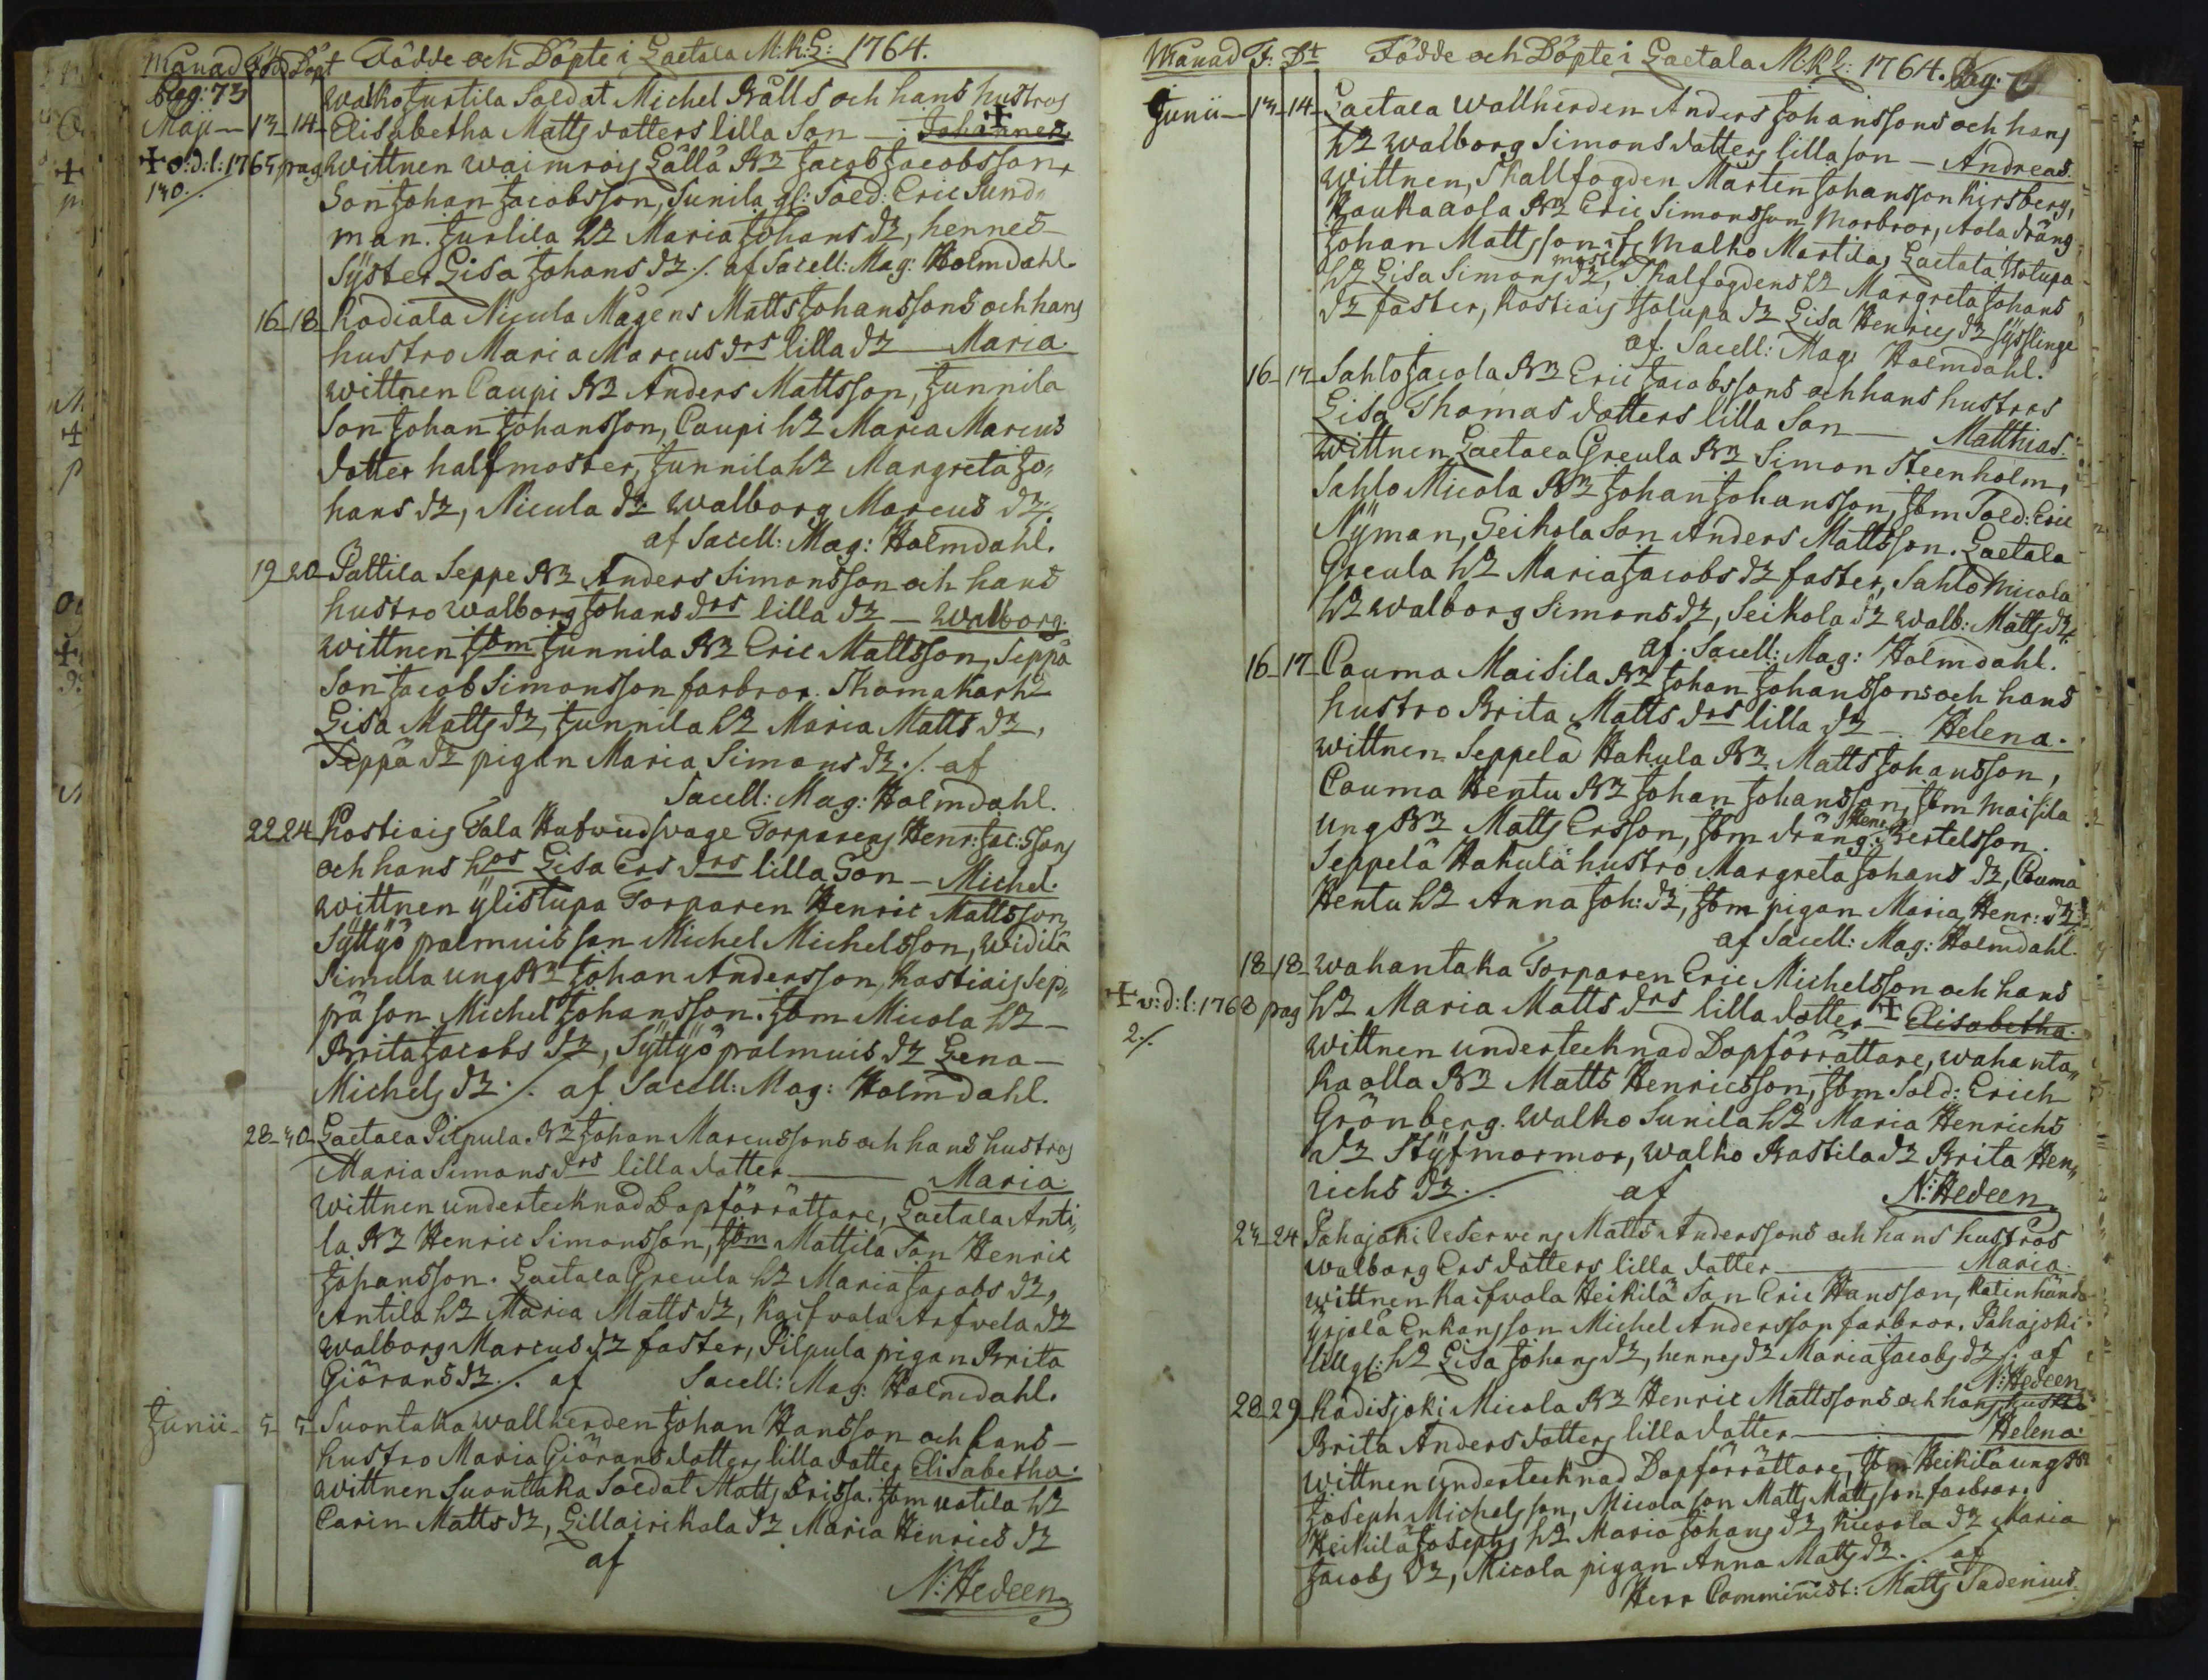 Månad Född Döpt Födde och Döpte i Laetala M:K:L: 1764.
Pag: 73
Walko Jurtila Soldat Michel Rålls och hans hustros
Maji 13 14 Elisabetha Matts dotters lilla Son - Johannes
✝ o:d:l: 1765 pag Wittnen Waimrois Lållä Bz Jacob Jacobsson,
130 ./.
Son Johan Jacobsson, Sunila gl: Sold: Eric Sund-
man. Jurlila Hz Maria Johans dz, hennes
Syster Lisa Johans dz ./. af Sacell: Mag: Holmdahl.
16 18 Kodiala Nicula Mågens Matts Johanssons och hans
hustro Maria Marcus drs lilla dz Maria.
Wittnen Caupi Bz Anders Mattsson, Junnila
Son Johan Johansson, Caupi Hz Maria Marcus
dotter halfmoster, Junnila Hz Margreta Jo-
hans dz, Nicula dz Walborg Marcus dz ./.
af Sacell: Mag: Holmdahl.
19 20 Pattila Seppe Bz Anders Simonsson och hans
hustro Walborg Johans drs lilla dz - Walborg.
Wittnen Jbm Junnila Bz Eric Mattsson, Seppä
Son Jacob Simonsson farbror. Thoma Karhz
Lisa Matts dz, Junnila Hz Maria Matts dz,
Seppä dz pigan Maria Simons dz ./. af
Sacell: Mag: Holmdahl.
22 24 Kostiais Tala Hufwudswage Torparens Henr: Jac:ssons
och hans hos Lisa Ers drs lilla Son - Michel.
Wittnen Ylistupa Torparen Henric Mattsson,
Syttyö palmuis son Michel Michelsson, Widilä
Simula ung Bz Johan Andersson, Kostiais Sep-
pä son Michel Johansson. Jbm Micola Hz -
Brita Jacobs dz, Syttyö palmuis dz Lena -
Michels dz ./. af Sacell: Mag: Holmdahl.
28 30 Laetala Pilpula Bz Johan Marcussons och hans hustros
Maria Simons drs lilla dotter Maria.
Wittnen undertecknad Dopförrättare, Laetala Anti-
la Bz Henric Simonsson, Jbm Mattila Son Henric
Johansson. Laetala Greula Hz Maria Jacobs dz,
Antila Hz Maria Matts dz, Kaifwala Arfwela dz
Walborg Marcus dz faster, Pilpula pigan Brita
Giörans dz ./. af Sacell: Mag: Holmdahl.
Junii 5 5 Suontaka Wallherden Johan Hansson och hans -
hustro Maria Giörans dotters lilla dotter Elisabetha.
Wittnen Suontaka Soldat Matts Brissa. Jbm Uotila Hz
Carin Matts dz, Lillairikala dz Maria Henrics dz
af
N: Hedeen.
Månad F: Dt Födde och Döpte i Laetala M:K:L: 1764. Pag: 74
Junii 13 14 Laetala Wallherden Anders Johanssons och hans
Hz Walborg Simons dotters lilla son - Andreas.
Wittnen, Skallfogden Mårten Johansson Kirsberg,
Raukaaola Bz Eric Simonsson Morbror, Aola dräng
Johan Mattsson if: Malko Martila, Laetala Isotupa
moster
Hz Lisa Simons dz, Skalfogdens Hz Margreta Johans
dz faster, Kostiais Isotupa dz Lisa Henrics dz syslinge
af. Sacell: Mag: Holmdahl.
16 17 Sahlo Jacola Bz Eric Jacobssons och hans hustros
Lisa Thomas dotters lilla Son Matthias.
Wittnen Laetala Greula Bz Simon Steenholm,
Sahlo Micola Bz Johan Johansson, Jbm Sold: Eric
Nyman, Seikola Son Anders Mattsson. Laetala
Greula Hz Maria Jacobs dz faster, Sahlo Micola
Hz Walborg Simons dz, Seikola dz Walb: Matts dz ./.
af. Sacell: Mag: Holmdahl.
16 17 Cauma Maisila Bz Johan Johanssons och hans
hustro Brita Matts drs lilla dz - Helena.
Wittnen Seppelä Hakula Bz Matts Johansson,
Cauma Hentu Bz Johan Johansson, Jbm Maisila
Henr:
ung Bz Matts Ersson, Jbm dräng Bertelsson.
Seppelä Hakula hustro Margreta Johans dz, Cauma
Hentu Hz Anna Joh: dz, Jbm pigan Maria Henr: dz
af Sacell: Mag: Holmdahl.
18 18 Wahantaka Torparen Eric Michelsson och hans
✝ v:d:l: 1768 pag Hz Maria Matts drs lilla dotter - ✝ Elisabetha.
2 ./.
Wittnen undertecknad Dopförrättare, Wahanta-
ka olla Bz Matts Henricsson, Jbm Sold: Erich
Grönberg. Walko Sunila Hz Maria Henrichs
dz Styfmormor, Walko Rastila dz Brita Hen-
richs dz ./. af N: Hedeen.
23 24 Pahajoki Reserwens Matts Anderssons och hans hustros
Walborg Ers dotters lilla dotter Maria.
Wittnen Kaifwola Heikilä Son Eric Hansson, Katinhändä
Yrjälä Enkans son Michel Andersson farbror. Pahajoki
lill gl: Hz Lisa Johans dz, hennes dz Maria Jacobs dz ./. af
N: Hedeen
28 29 Kodisjoki Micola Bz Henric Mattssons och hans hustros
Brita Anders dotters lilla dotter Helena.
Wittnen undertecknad Dopförrättare, Jbm Heikilä ung Bz
Joseph Michelsson, Micola son Matts Mattsson farbror.
Heikilä Josephs Hz Maria Johans dz, Kierola dz Maria
Jacobs dz, Micola pigan Anna Matts dz ./. af
Herr Comminist: Matts Tadenius.